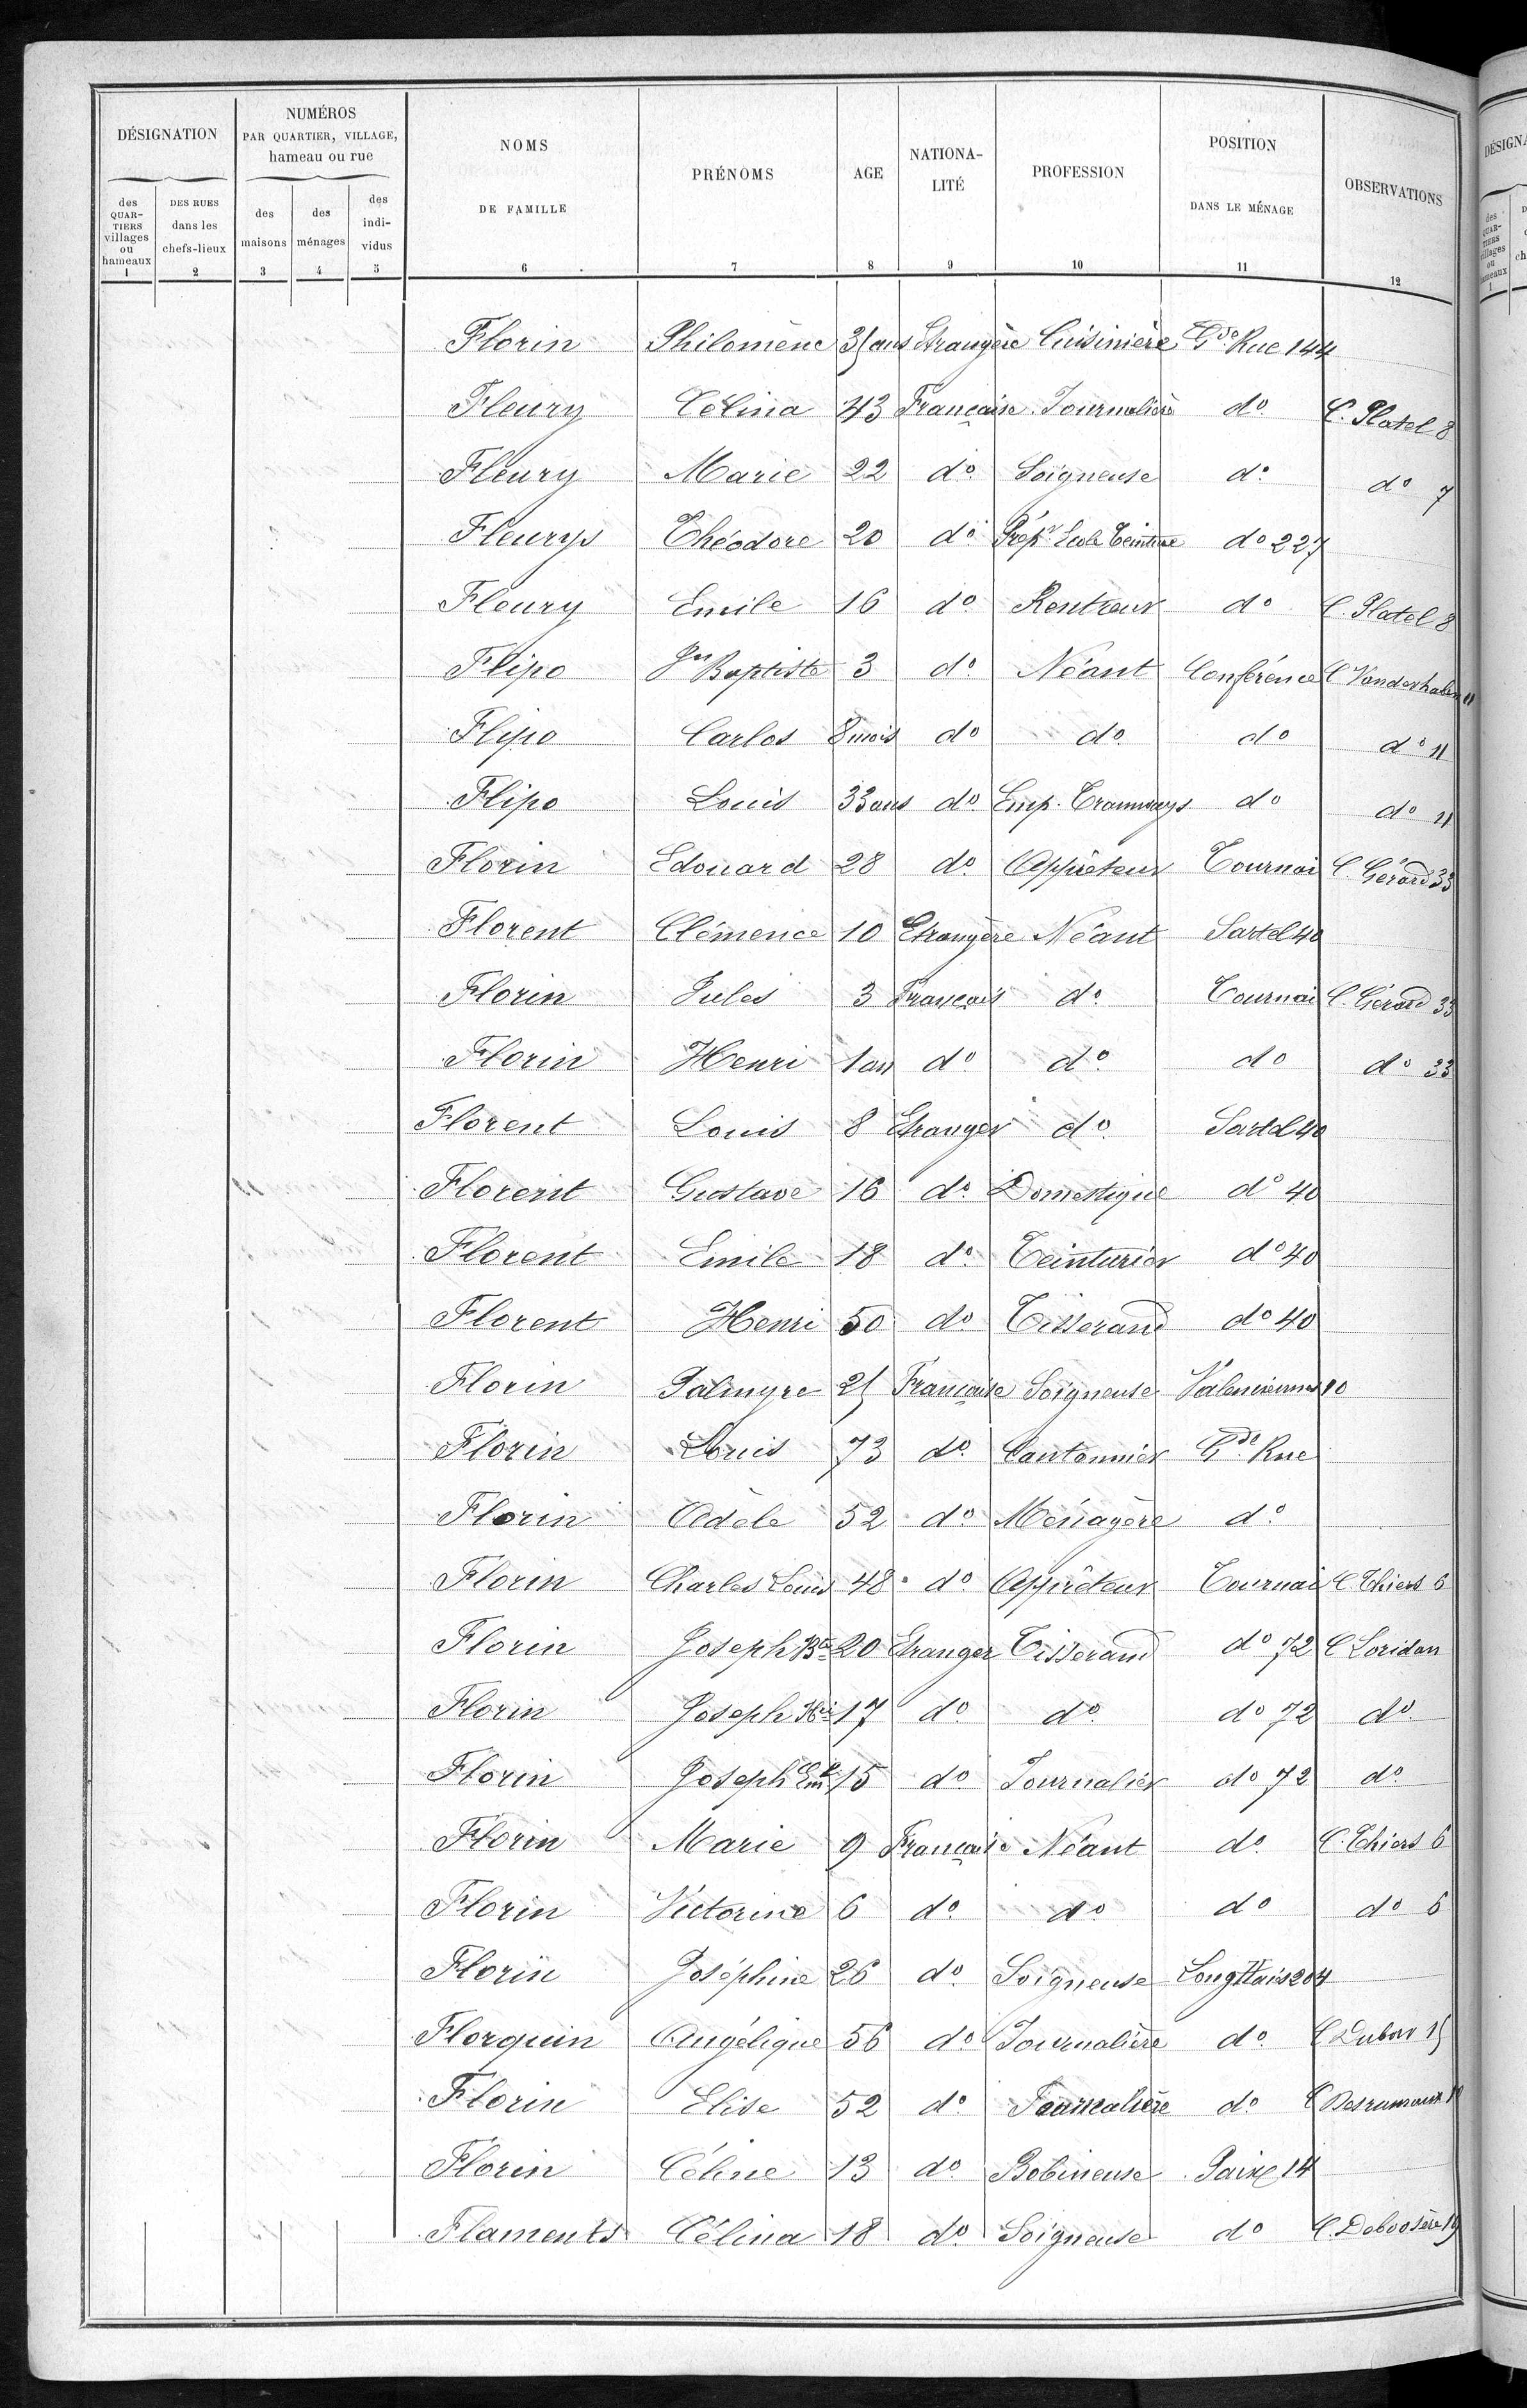 DÉSIGNATION
NUMÉROS PAR QUARTIER, VILLAGE, hameau ou rue
NOMS DE FAMILLE
PRÉNOMS
AGE
NATIONA-LITÉ
PROFESSION
POSITION DANS LE MÉNAGE
OBSERVATIONS
des QUAR-TIERS villages ou hameaux
DES RUES dans les chefs-lieux
des maisons
des ménages
des indi-vidus
1 2 3 4 5 6 7 8 9 10 11 12
Florin Philomène 35 ans Etrangère Cuisinière Gde Rue 144
Fleury Célina 43 Française Journalière do C. Platel 8
Fleury Marie 22 do Soigneuse do do 7
Fleurys Théodore 20 do Prépr Ecole Teinture do 227
Fleury Emile 16 do Rentreur do C. Platel 8
Flipo Jn Baptiste 3 do Néant Conférence C. Vanderhalen 11
Flipo Carlos 8 mois do do do do 11
Flipo Louis 33 ans do Emp. Tramways do do 11
Florin Edouard 28 do Apprêteur Tournai C. Gérard 33
Florent Clémence 10 Etrangère Néant Sartel 40
Florin Jules 3 Français do Tournai C. Gérard 33
Florin Henri 1 an do do do do 33
Florent Louis 8 Etranger do Sartel 40
Florent Gustave 16 do Domestique do 40
Florent Emile 18 do Teinturier do 40
Florent Henri 50 do Tisserand do 40
Florin Palmyre 25 Française Soigneuse Valenciennes 10
Florin Louis 73 do Cantonnier Gde Rue
Florin Adèle 52 do Ménagère do
Florin Charles Louis 48 do Apprêteur Tournai C. Thiers 6
Florin Joseph Bte 20 Etranger Tisserand do 72 C Loridan
Florin Joseph Hri 17 do do do 72 do
Florin Joseph Eml 15 do Journalier do 72 do
Florin Marie 9 Française Néant do C. Thiers 6
Florin Victorine 6 do do do do 6
Florin Joséphine 26 do Soigneuse Long Haies 204
Florquin Angélique 56 do Journalière do C Dubar 15
Florin Elise 52 do Journalière do C Desrumaux 10
Florin Céline 13 do Bobineuse Paix 14
Flaments Célina 18 do Soigneuse do C. Deboosère